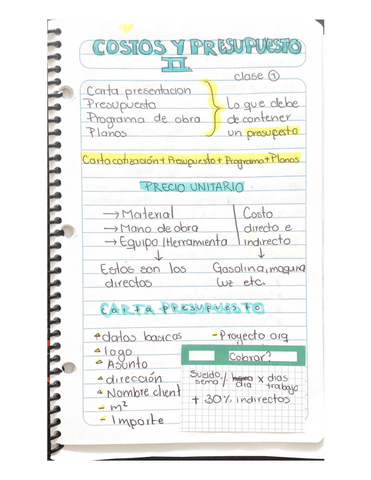 COSTOS Y PRESUPUESTO
II
clase ①
Carta presentacion
Presupuesto
Programa de obra
Planos
Lo que debe
de contener
un presupesto
Carta cotización + Presupuesto + Programa + Planos
PRECIO UNITARIO
→ Material
→ Mano de obra
→ Equipo/Herramienta
Costo
directo e
indirecto
Estos son los
directos
Gasolina, maquina
luz etc.
CARTA PRESUPUESTO
datos basicos
logo
Asunto
dirección
Nombre client
- m²
- Importe
- Proyecto arq
Cobrar?
Sueldo / hora x dias
sema dia trabajo
+ 30% indirectos